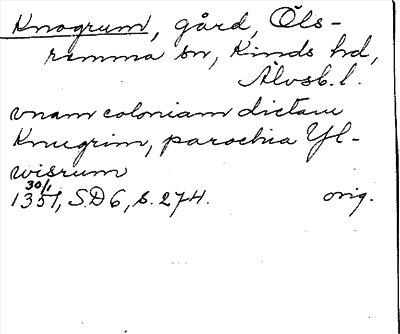 Knogrum, gård, Öls-
remma sn, Kinds hd,
Älvsb. l.
vnam coloniam dictam
Knugrim, parochia Yl-
wisrum
30/1
1351, S.D 6, s. 274. orig.